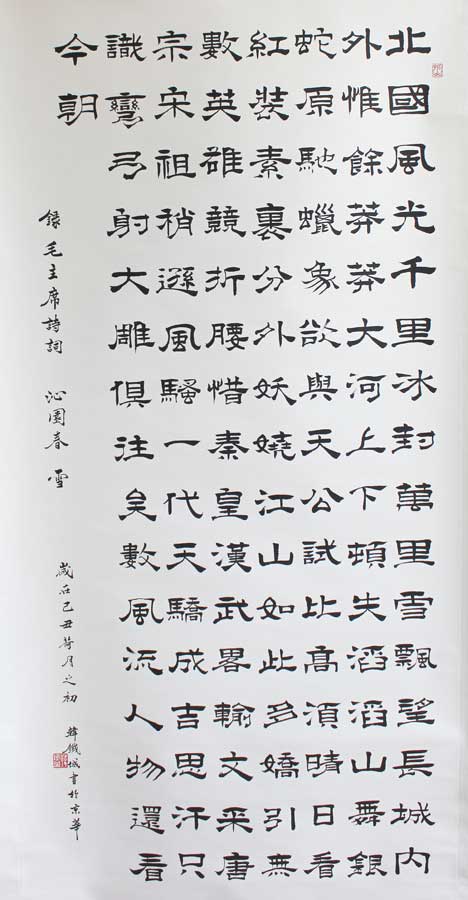 北國風光千里冰封萬里雪飄望長城內
外惟餘莽莽大河上下頓失滔滔山舞銀
蛇原馳蠟象欲與天公試比高須晴日看
紅裝素裹分外妖嬈江山如此多嬌引無
數英雄競折腰惜秦皇漢武畧輸文采唐
宗宋祖稍遜風騷一代天驕成吉思汗只
識彎弓射大雕俱往矣數風流人物還看
今朝
錄毛主席詩詞 沁園春 雪
歲在己丑荷月之初 韓鐵城書於京華